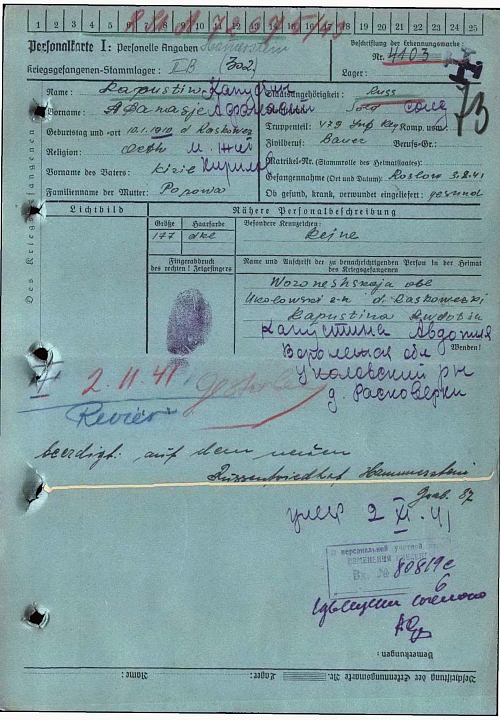 1 2 3 4 5 6 7 8 9 10 11 12 13 14 15 16 17 18 19 20 21 22 23 24 25
Personalkarte I: Personelle Angaben
Hammerstein
Beschriftung der Erkennungsmarke:
Nr. 4103
Kriegsgefangenen-Stammlager: II B (302)
Lager:
73
Des Kriegsgefangenen
Name: Kapustin Капустин
Vorname: Afanasje Афанасий
Geburtstag und -ort 10.1.1910 d. Raskowez
Religion: Orth
Vorname des Vaters: Kiril Кирилл
Familienname der Mutter: Popowa
Staatsangehörigkeit: Russ
Sold солд
Truppenteil: 479 Inf Reg Komp. usw.
Zivilberuf: Bauer Berufs-Gr.
Matrikel-Nr. (Stammrolle des Heimatstaates):
Gefangennahme (Ort und Datum): Roslow 3.8.41
Ob gesund, krank, verwundet eingeliefert: gesund
Lichtbild
Nähere Personalbeschreibung
Größe Haarfarbe
177 dkl
Besondere Kennzeichen:
Keine
Fingerabdruck
des rechten! Zeigefingers
Name und Anschrift der zu benachrichtigenden Person in der Heimat
des Kriegsgefangenen
Woroneshskaja obl
Ukolowski r-n d. Raskowezki
Kapustina Awdotia
Капустина Авдотия
Воронежская обл
Wenden!
Уколовский рн
д. Расковерки
2.11.41 gestorben
Revier
beerdigt: auf dem neuen
Russenfriedhof Hammerstein
Grab. 87
умер 2 XI.41
персональный учетной
ИЗМЕНЕНИЯ
Вх. № 80819с
Bemerkungen:
Beschriftung der Erkennungsmarke Nr. Lager: Name: